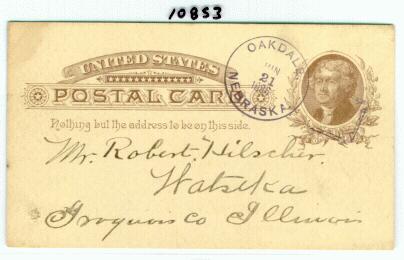 10853
UNITED STATES
POSTAL CARD
OAKDALE
JUN
21
NEBRASKA
Nothing but the address to be on this side.
Mr. Robert Hilscher.
Watseka
Iroquois Co Illinois